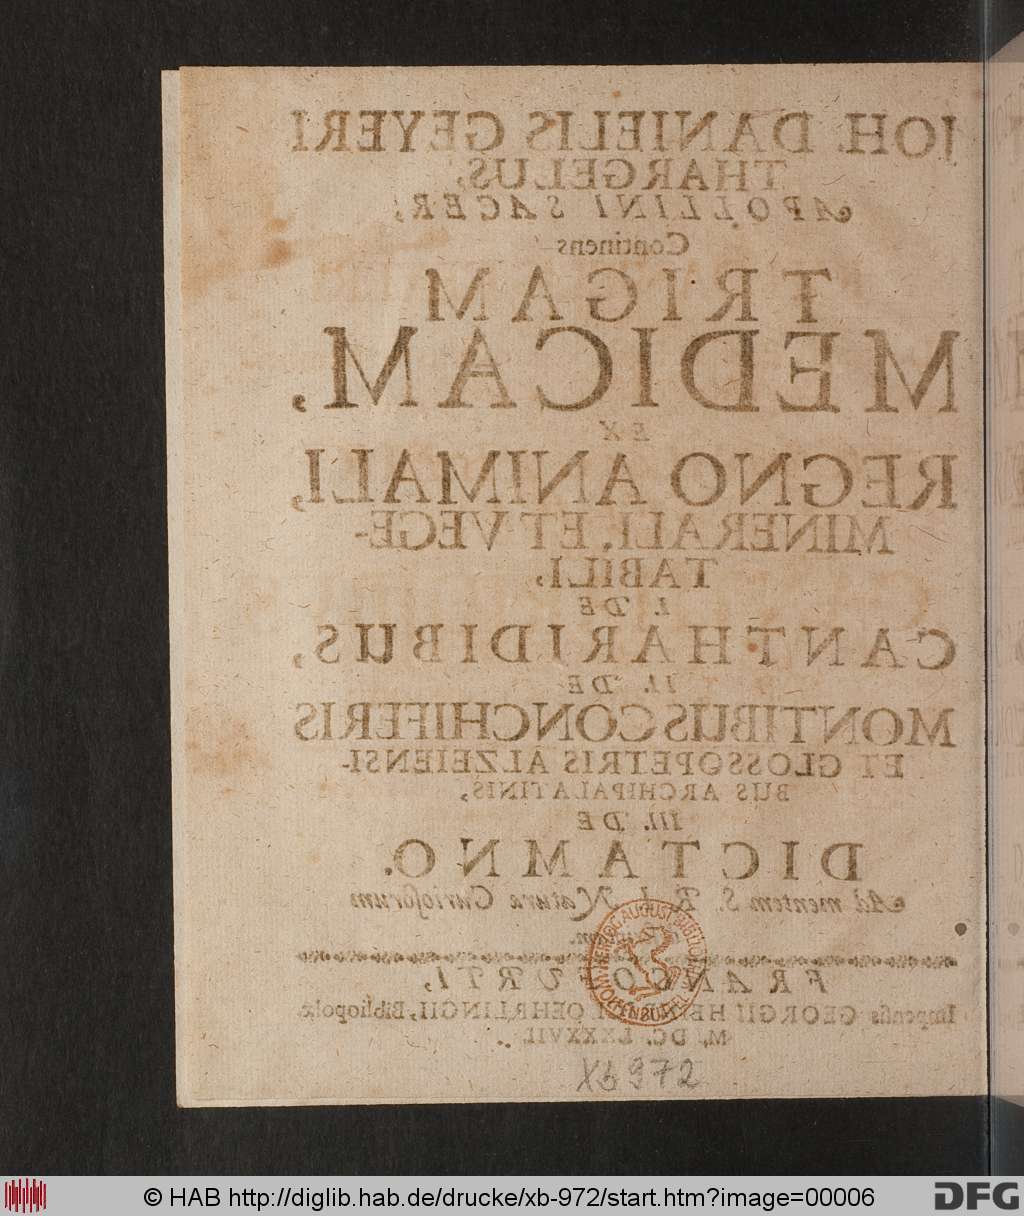 JOH. DANIELIS GEYERI
THARGELUS,
APOLLINI SACER,
Continens
TRIGAM
MEDICAM,
EX
REGNO ANIMALI,
MINERALI, ET VEGE-
TABILI,
I. DE
CANTHARIDIBUS,
II. DE
MONTIBUS CONCHIFERIS
ET GLOSSOPETRIS ALZEIENSI-
BUS ARCHIPALATINIS,
III. DE
DICTAMNO.
Ad mentem S. R. I. Naturæ Curiosorum
FRANCOFURTI,
Impensis GEORGII HENRICI OEHRLINGII, Bibliopolæ.
M, DC. LXXXVII.
HERZOG AUGUST BIBLIOTHEK WOLFENBÜTTEL
Xb 972
© HAB http://diglib.hab.de/drucke/xb-972/start.htm?image=00006
DFG